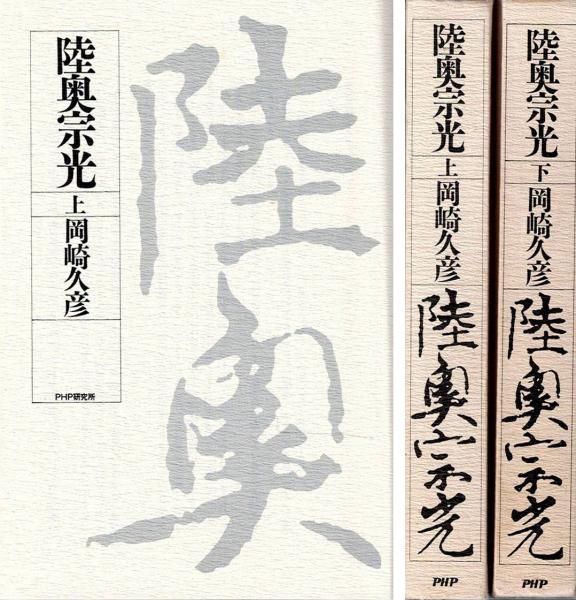 陸奥宗光
上
岡崎久彦
PHP研究所
陸奥
陸奥宗光
上
岡崎久彦
陸奥宗光
PHP
陸奥宗光
下
岡崎久彦
陸奥宗光
PHP